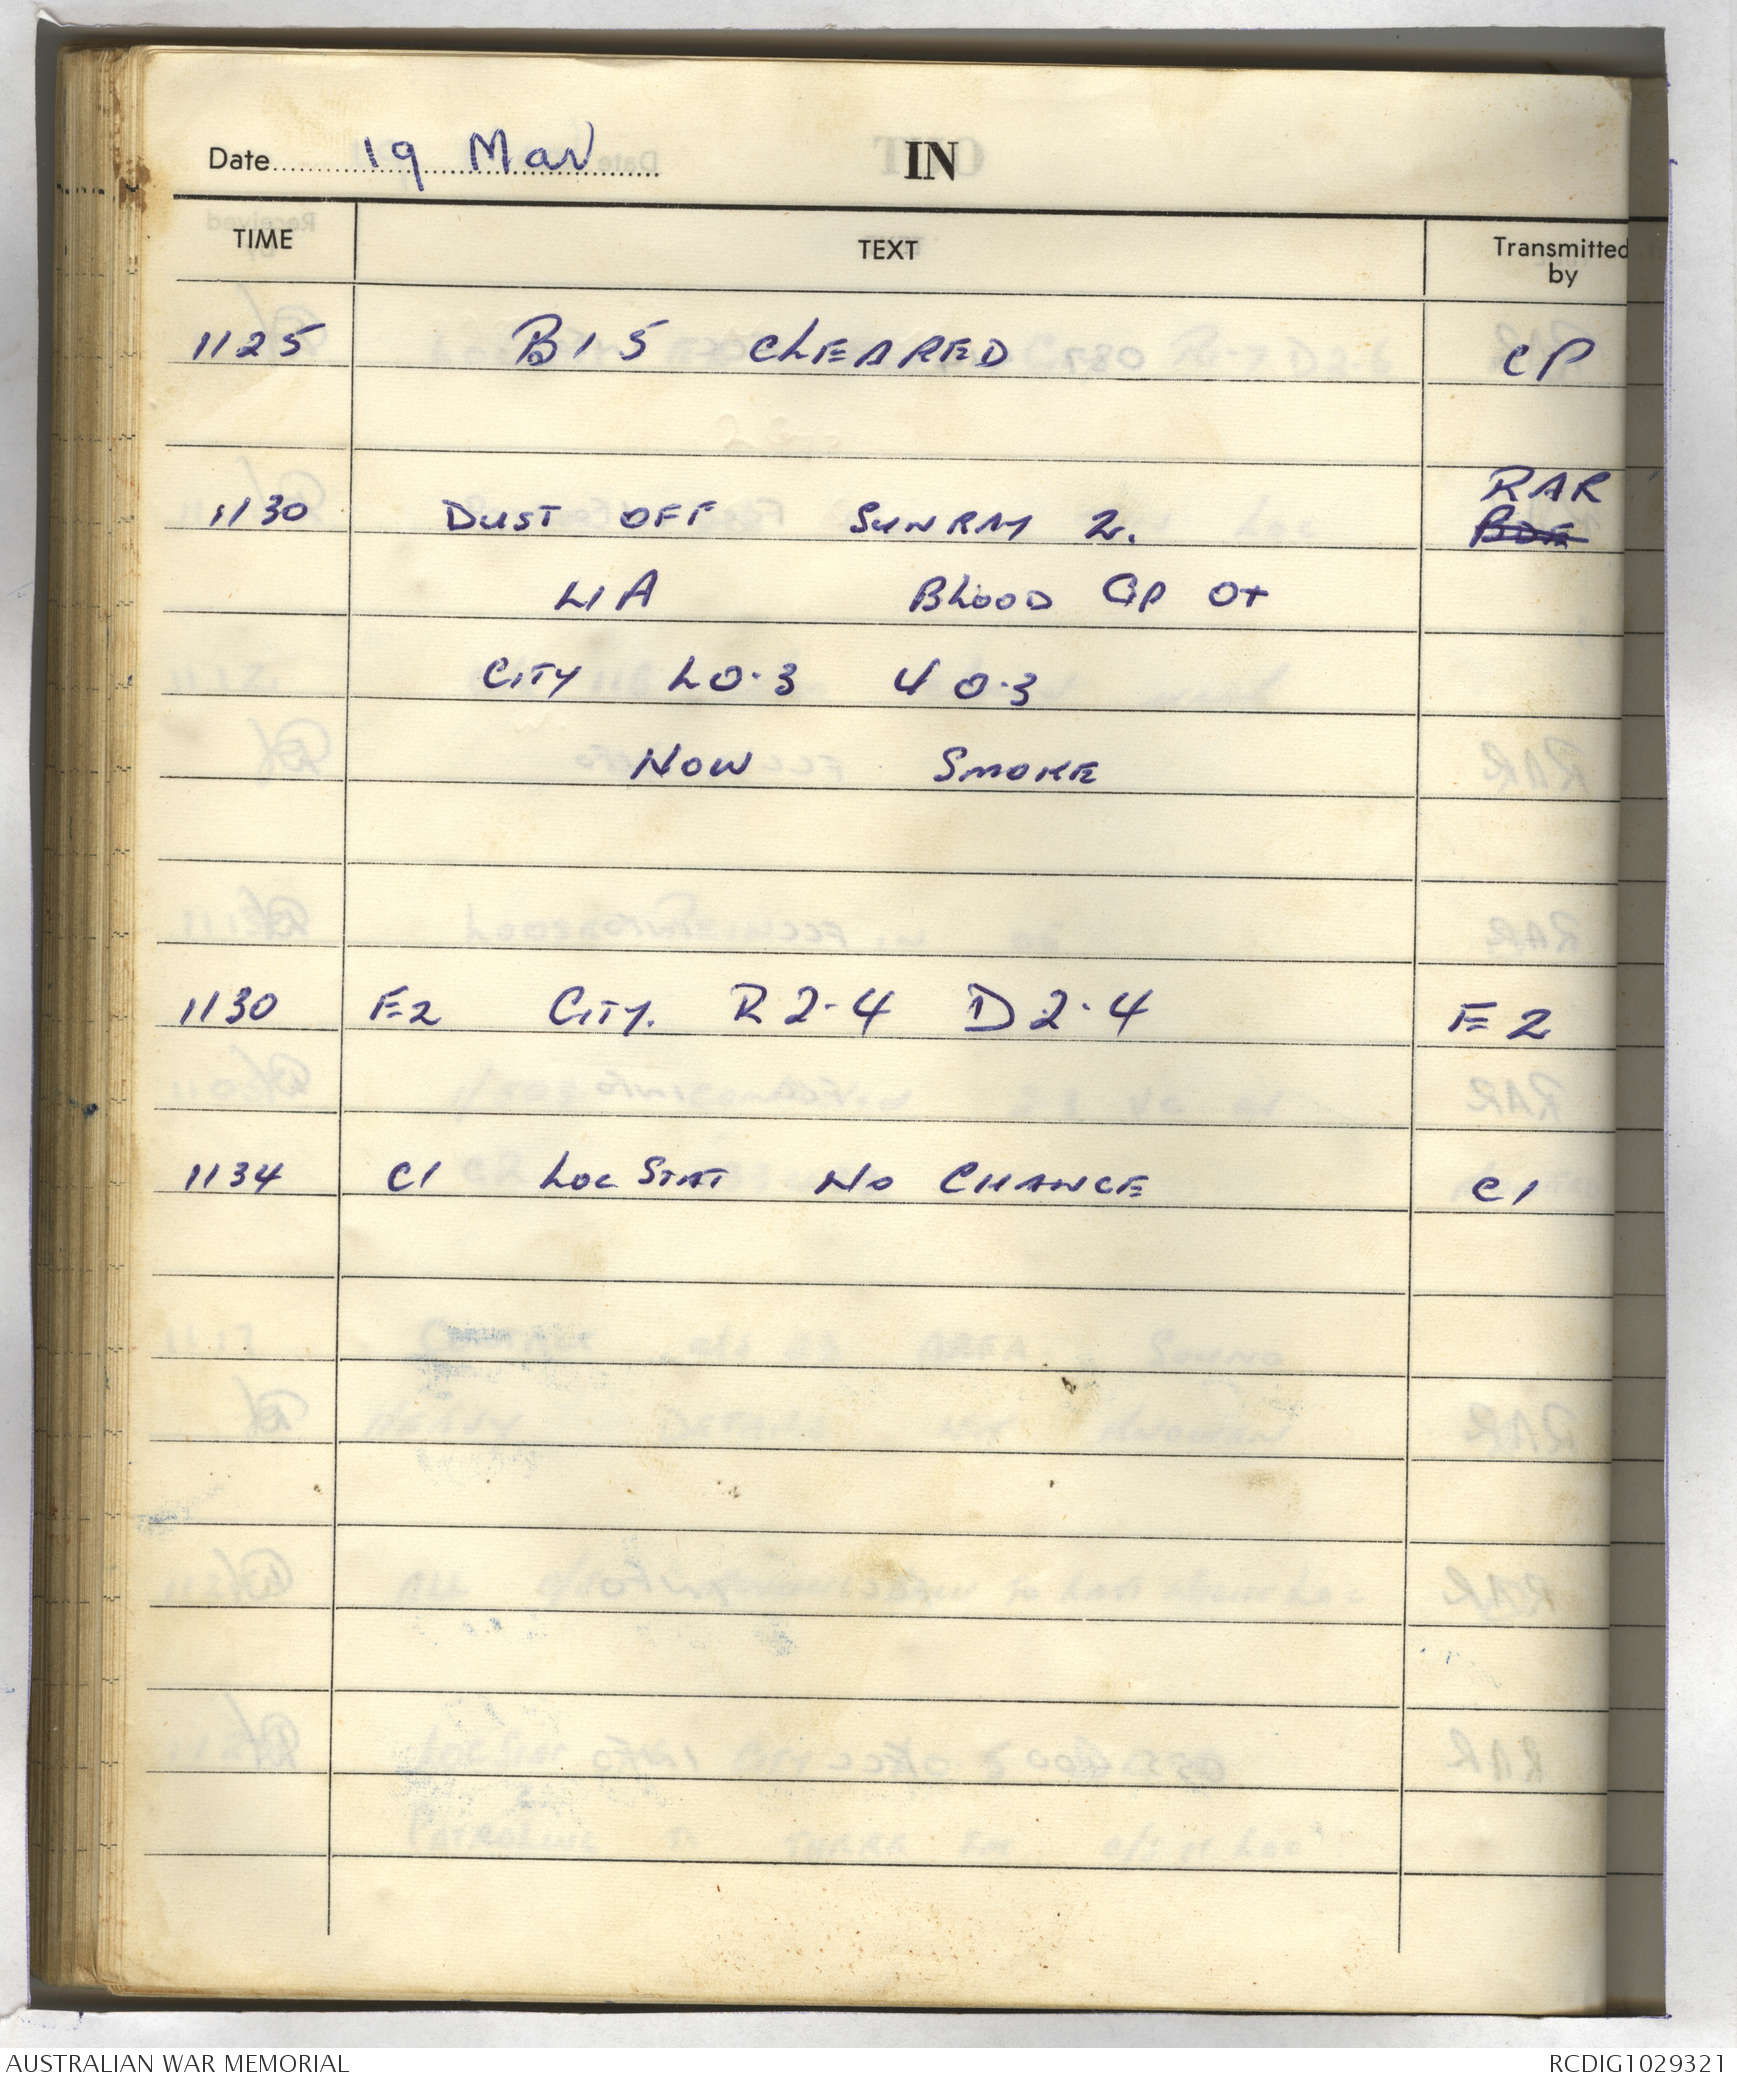 Date 19 Mar
IN
TIME TEXT Transmitted by
1125 B15 CLEARED CP
1130 DUST OFF SUNRAY 2. RAR BDE
L1A BLOOD GP O+
CITY L0.3 U0.3
NOW SMOKE
1130 E2 CITY. R2.4 D2.4 E2
1134 C1 LOC STAT NO CHANGE C1
AUSTRALIAN WAR MEMORIAL RCDIG1029321